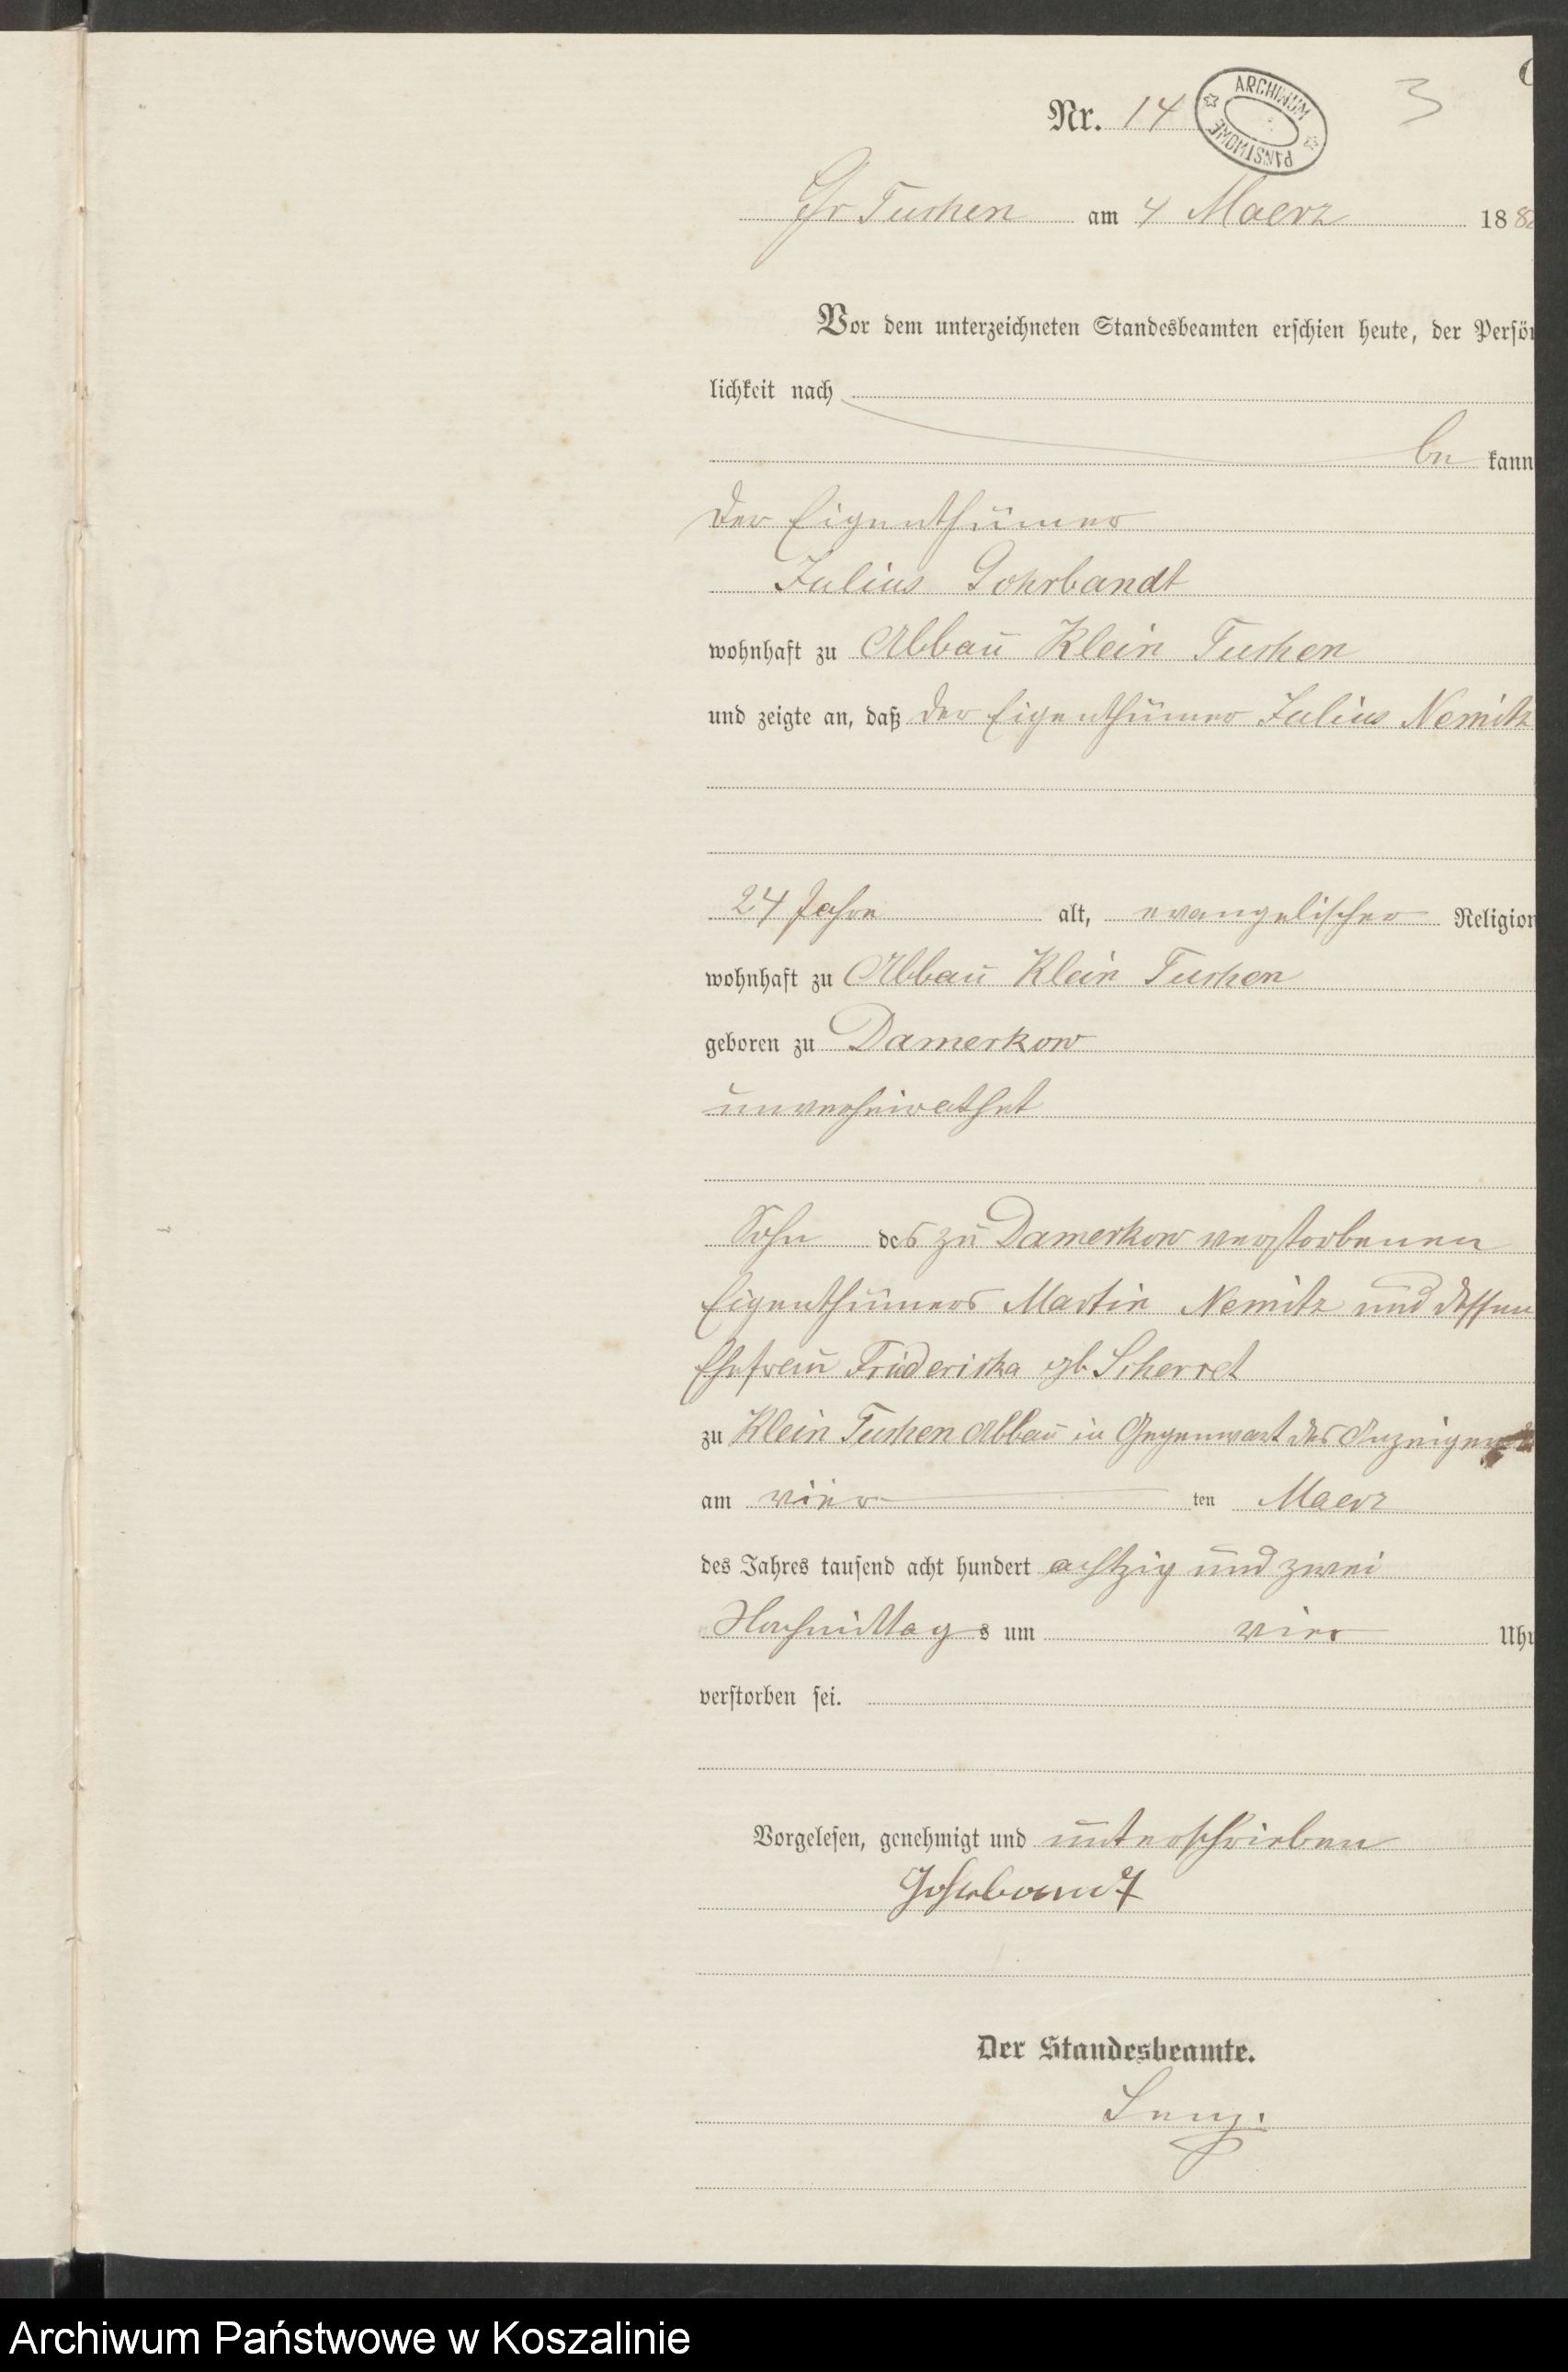 Nr. 14
ARCHIWUM PAŃSTWOWE
3
Gr Tuchen am 4 Maerz 188
Vor dem unterzeichneten Standesbeamten erschien heute, der Persön
lichkeit nach
be kann
der Eigenthümer
Julius Gohrbandt
wohnhaft zu Abbau Klein Tuchen
und zeigte an, daß der Eigenthümer Julius Nemitz
24 Jahre alt, evangelischer Religion
wohnhaft zu Abbau Klein Tuchen
geboren zu Damerkow
unverheirathet
Sohn des zu Damerkow verstorbenen
Eigenthümers Martin Nemitz und dessen
Ehefrau Friedericka geb Scherret
zu Klein Tuchen Abbau in Gegenwart des Anzeigers
am vier ten Maerz
des Jahres tausend acht hundert achtzig und zwei
Nachmittag s um vier Uhr
verstorben sei.
Vorgelesen, genehmigt und unterschrieben
Gohrbandt
Der Standesbeamte.
Archiwum Państwowe w Koszalinie